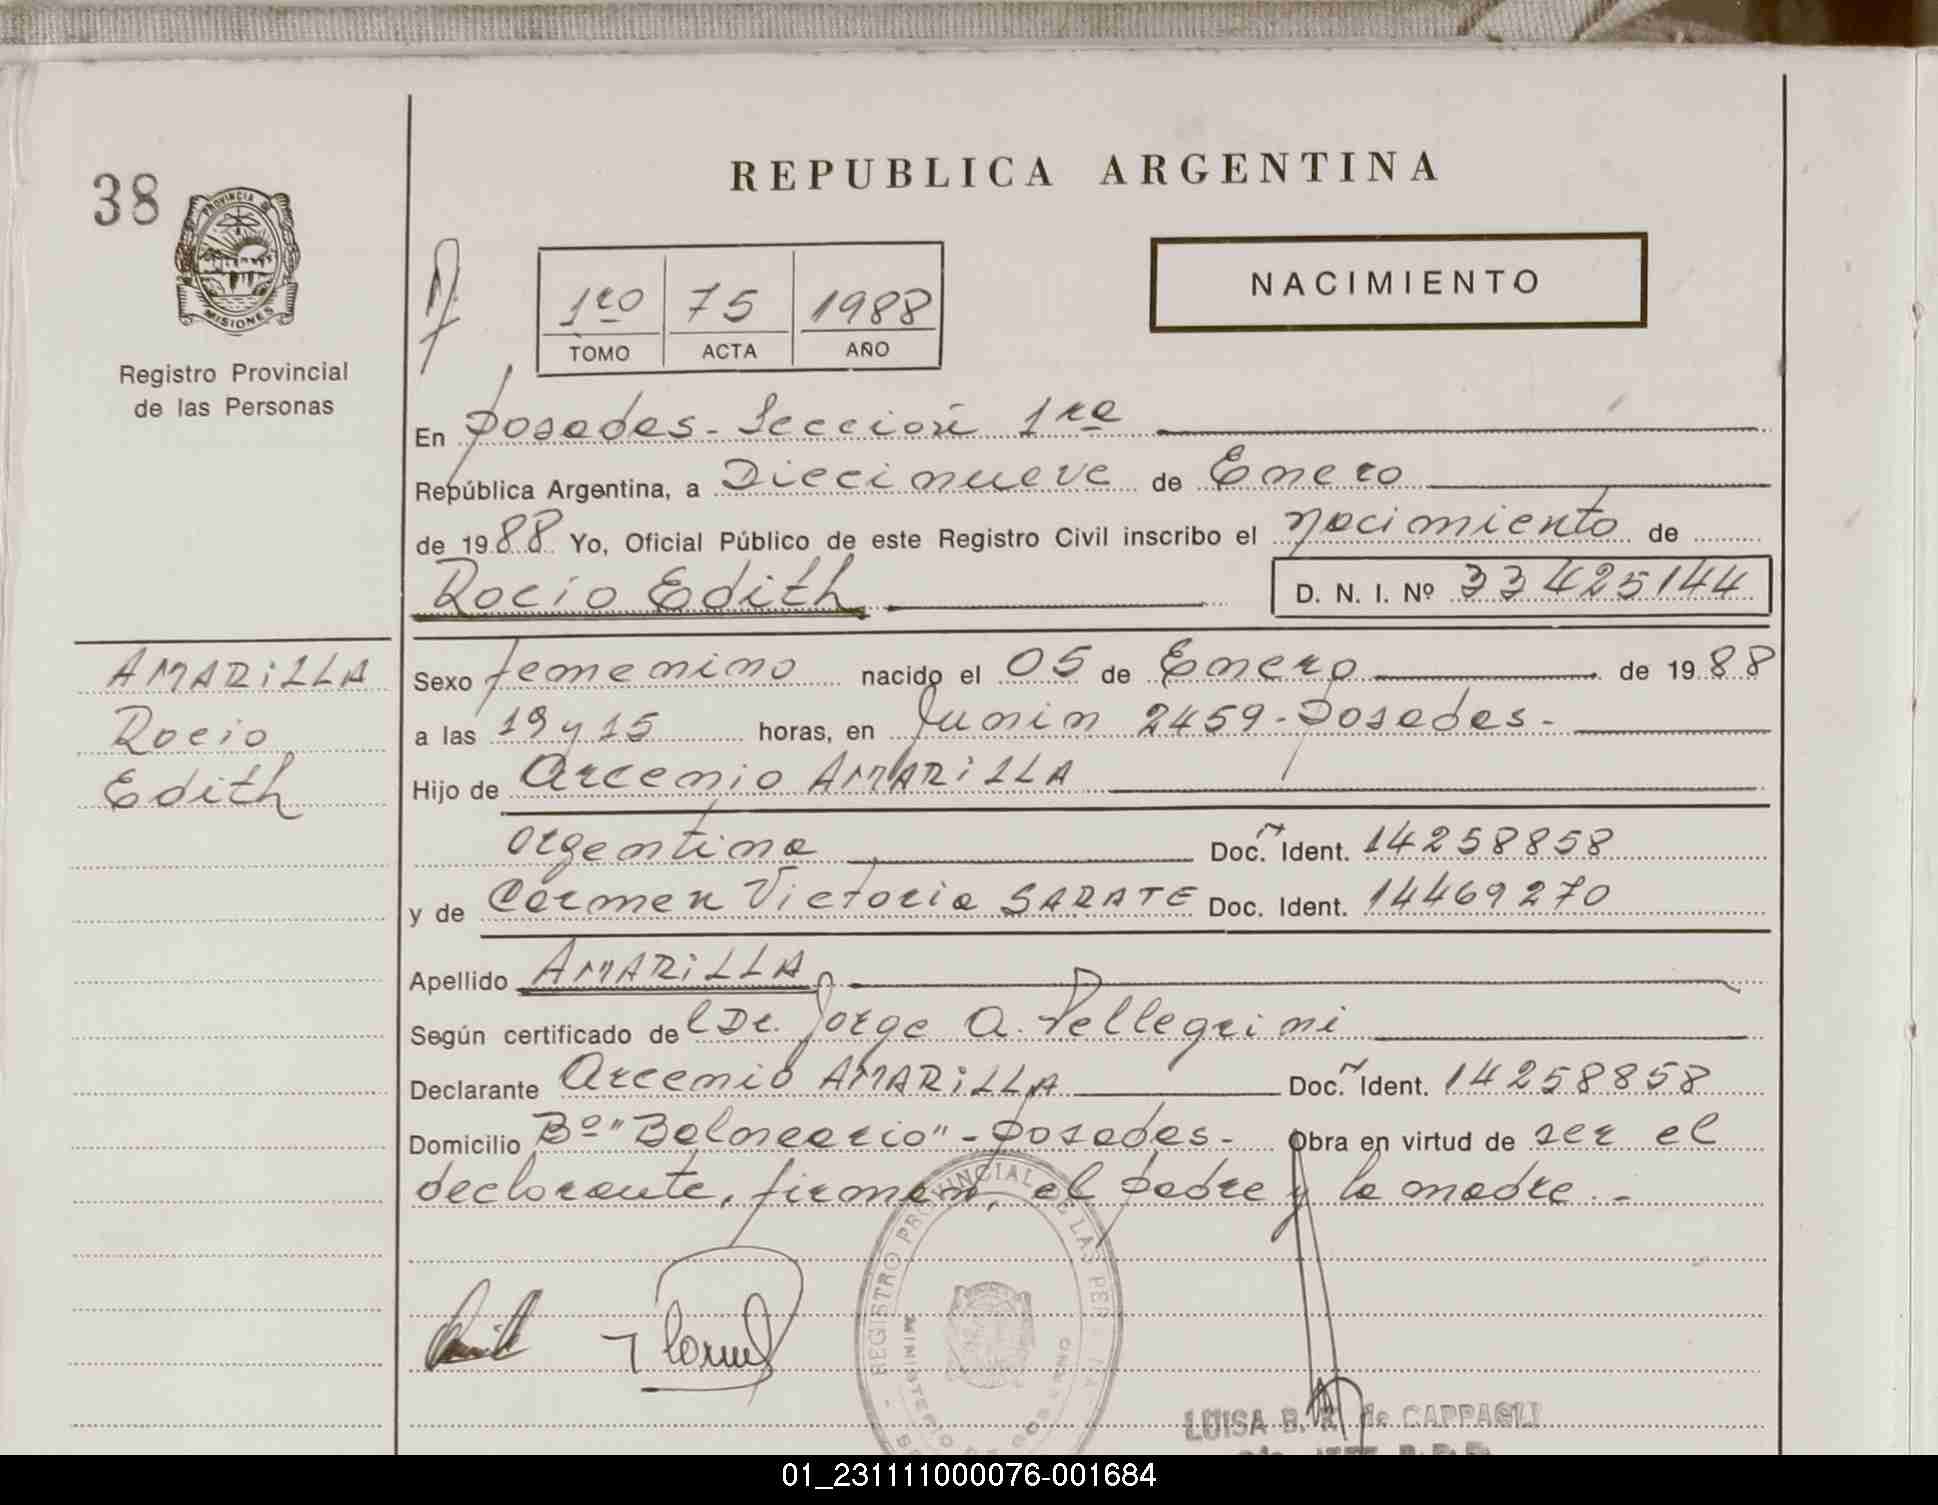 REPUBLICA ARGENTINA
38
PROVINCIA DE
MISIONES
Registro Provincial
de las Personas
NACIMIENTO
1ro 75 1988
TOMO ACTA AÑO
En Posadas - Sección 1ra
República Argentina, a Diecinueve de Enero
de 1988 Yo, Oficial Público de este Registro Civil inscribo el nacimiento de
Rocío Edith D. N. I. Nº 33425144
AMARiLLA
Rocio
Edith
Sexo femenino nacido el 05 de Enero de 1988
a las 19 y 15 horas, en Junin 2459 - Posadas -
Hijo de Arcenio AMARiLLA
argentina Doc. Ident. 14258858
y de Carmen Victoria SARATE Doc. Ident. 14469270
Apellido AMARiLLA
Según certificado del Dr. Jorge A. Pellegrini
Declarante Arcenio AMARiLLA Doc. Ident. 14258858
Domicilio Bº "Balneario" - Posadas - Obra en virtud de ser el
declarante, firman, el padre y la madre. -
REGISTRO PROVINCIAL DE LAS PER
MINISTERIO DE GOBIERNO
LUISA B. R. de CAPPAGLI
01_231111000076-001684